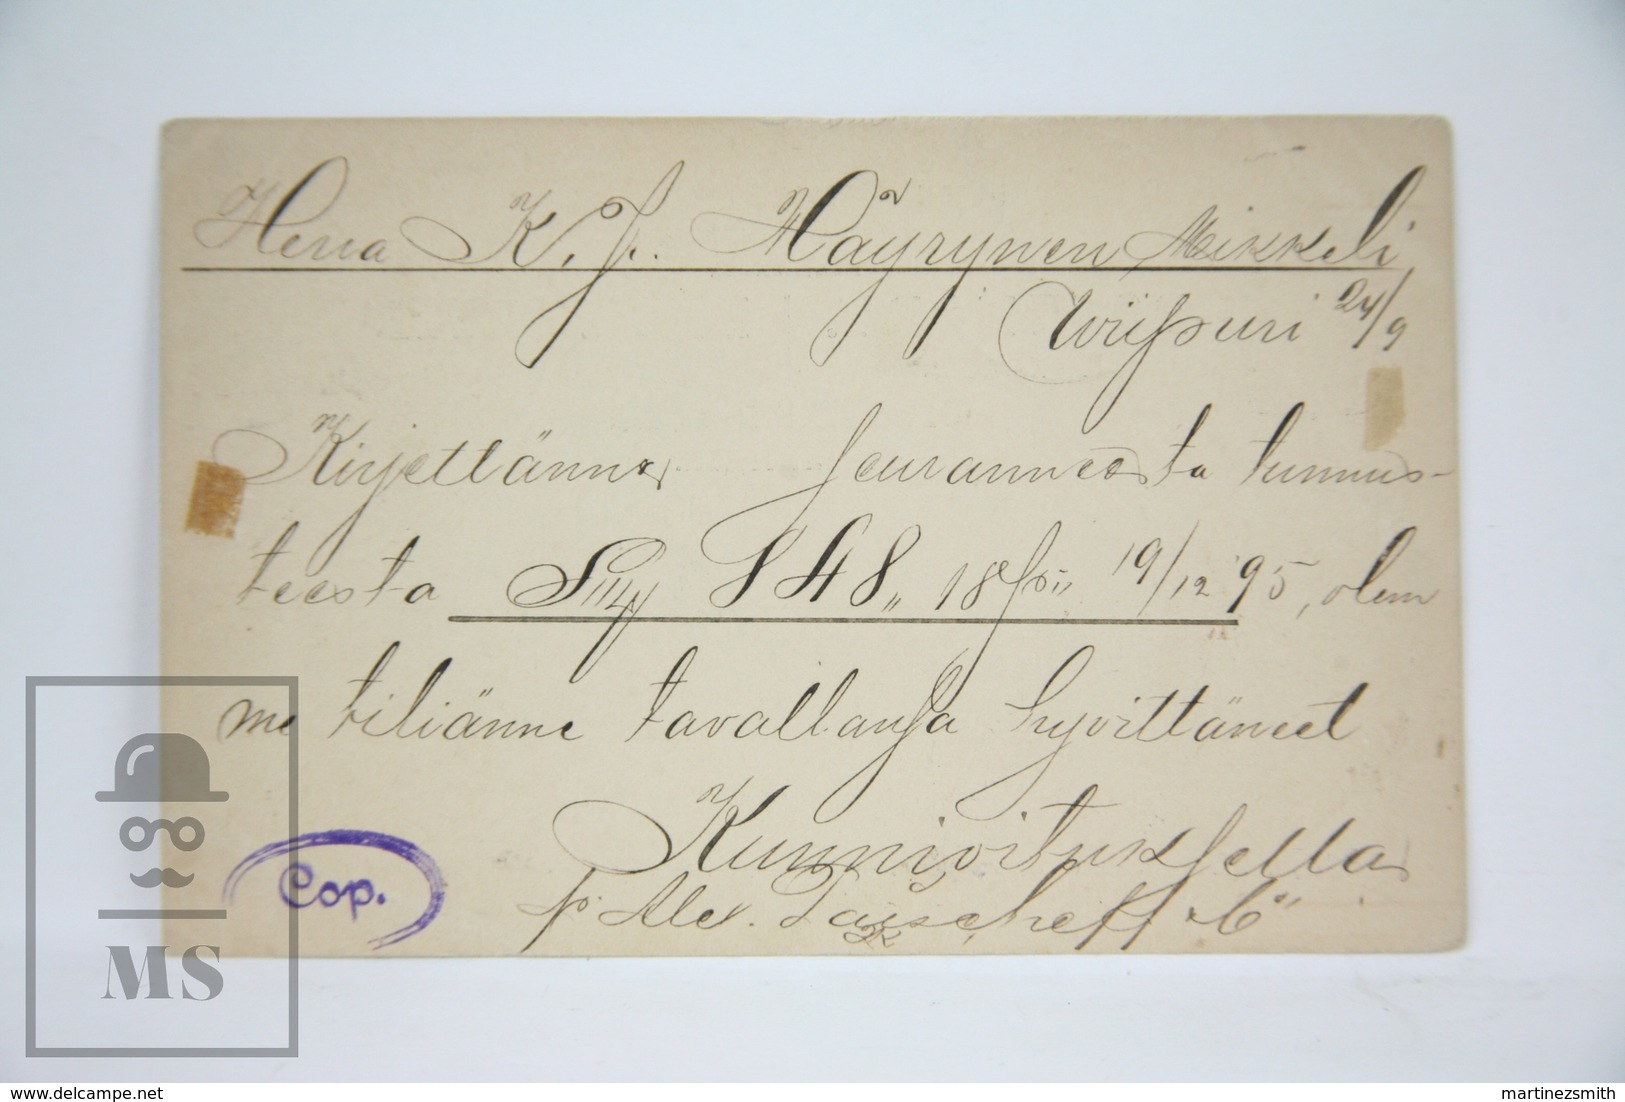 Herra K. J. Häyrynen Mikkeli
Wiipuri 24/9
Kirjettänne seuranneesta tunnus-
teesta 848,, 18 19/12 95, olem
me tiliänne tavallansa hyvittäneet
Kunnioituksella
p. Alex. &C°
Cop.
MS
delcampe.net
martinezsmith